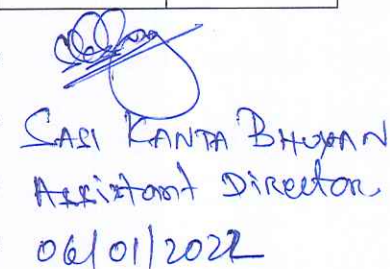 SASI KANTA BHUYAN
Assistant Director,
06/01/2022